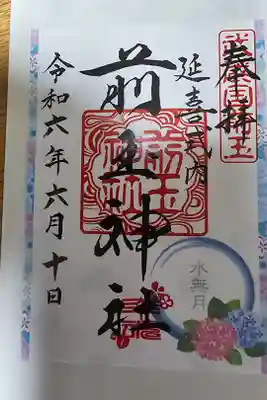 奉拝
延喜式内
前玉神社
令和六年六月十日
水無月